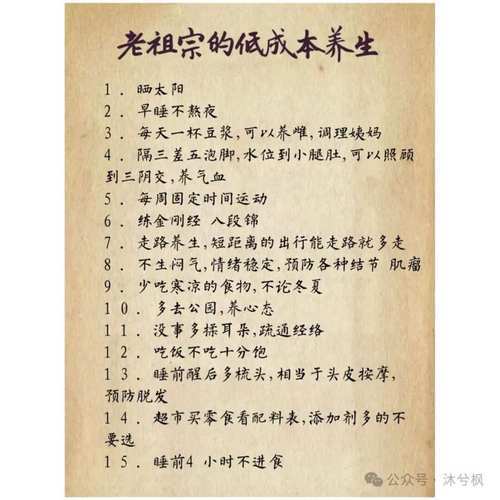 老祖宗的低成本养生
1．晒太阳
2．早睡不熬夜
3．每天一杯豆浆,可以养雌,调理姨妈
4．隔三差五泡脚,水位到小腿肚,可以照顾
到三阴交,养气血
5．每周固定时间运动
6．练金刚经 八段锦
7．走路养生,短距离的出行能走路就多走
8．不生闷气,情绪稳定,预防各种结节 肌瘤
9．少吃寒凉的食物,不论冬夏
10．多去公园,养心态
11．没事多揉耳朵,疏通经络
12．吃饭不吃十分饱
13．睡前醒后多梳头,相当于头皮按摩,
预防脱发
14．超市买零食看配料表,添加剂多的不
要选
15．睡前4 小时不进食
公众号·沐兮枫